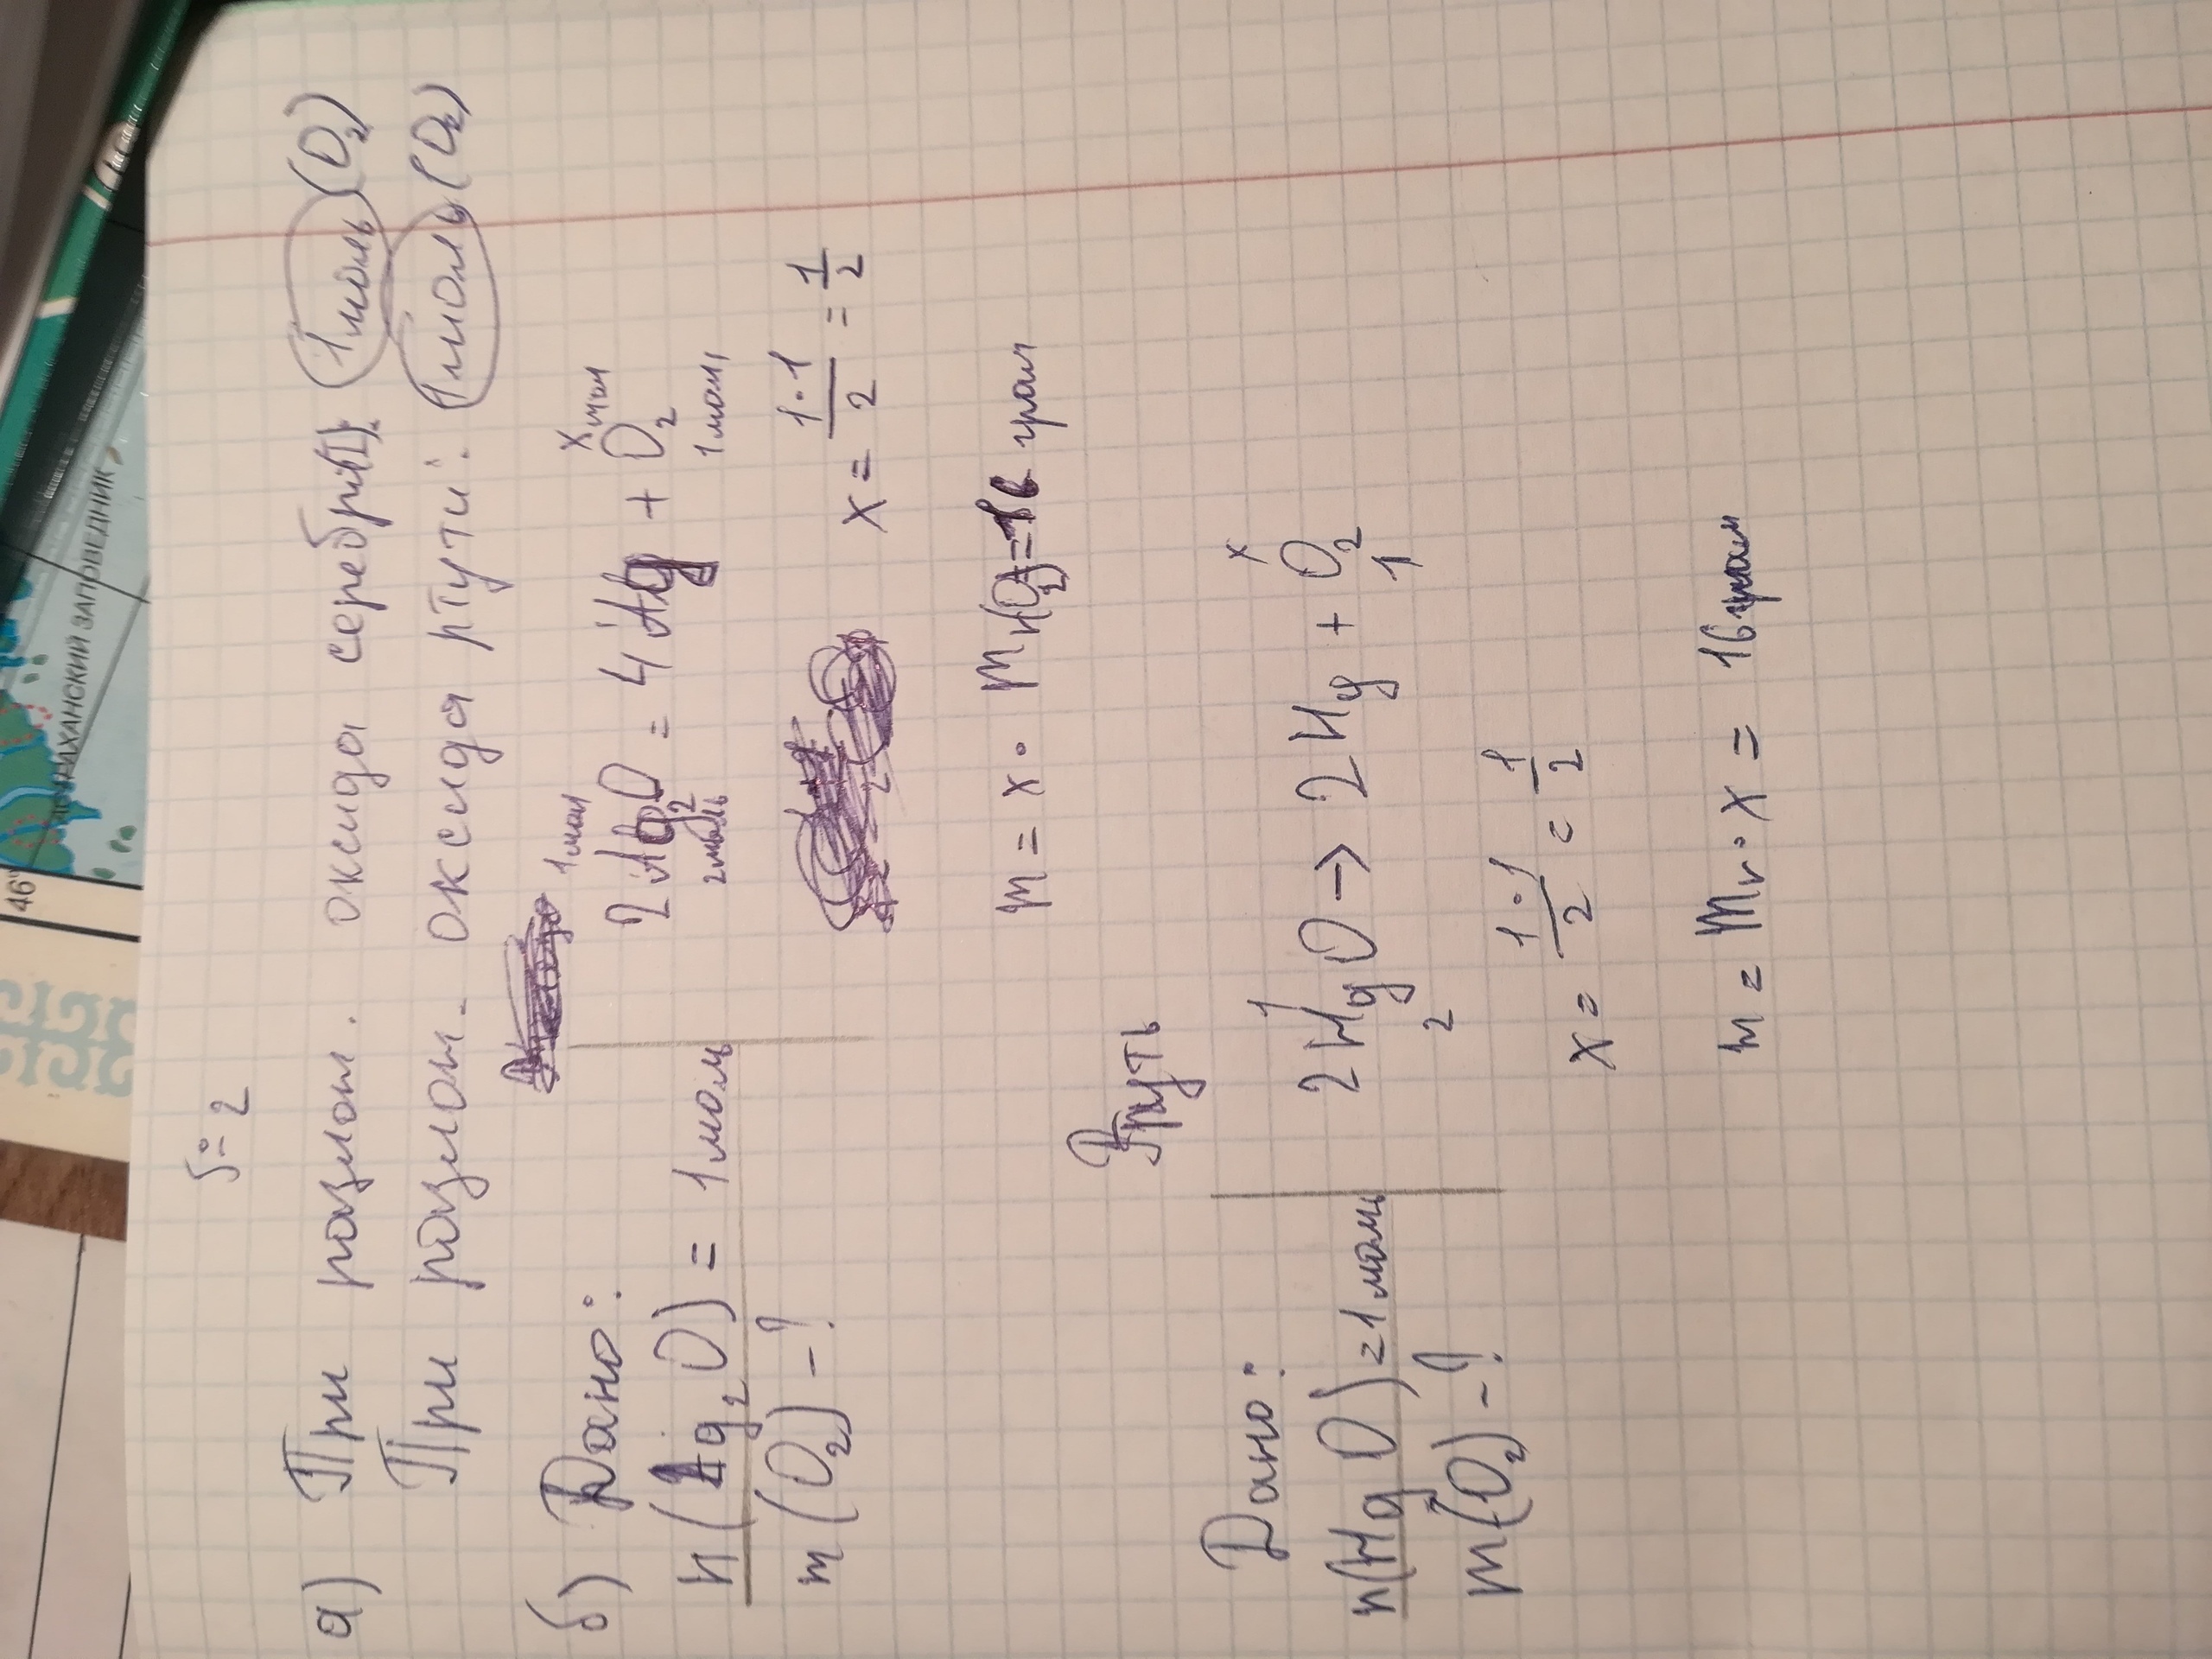 5-2
а) При разлож. оксида серебра: 1 моль (O₂)
При разлож. оксида ртути: 1 моль (O₂)
б) Дано:
n(Ag₂O) = 1 моль
m(O₂) - ?
1 мол x мол
2Ag₂O = 4Ag + O₂
2 моль 1 моль
x = 1·1/2 = 1/2
m = x · Mr(O₂) = 16 грам
Ртуть
Дано:
n(HgO) = 1 моль
m(O₂) - ?
1 x
2HgO → 2Hg + O₂
2 1
x = 1·1/2 = 1/2
m = Mr · x = 16 грам
46°
АСТРАХАНСКИЙ ЗАПОВЕДНИК